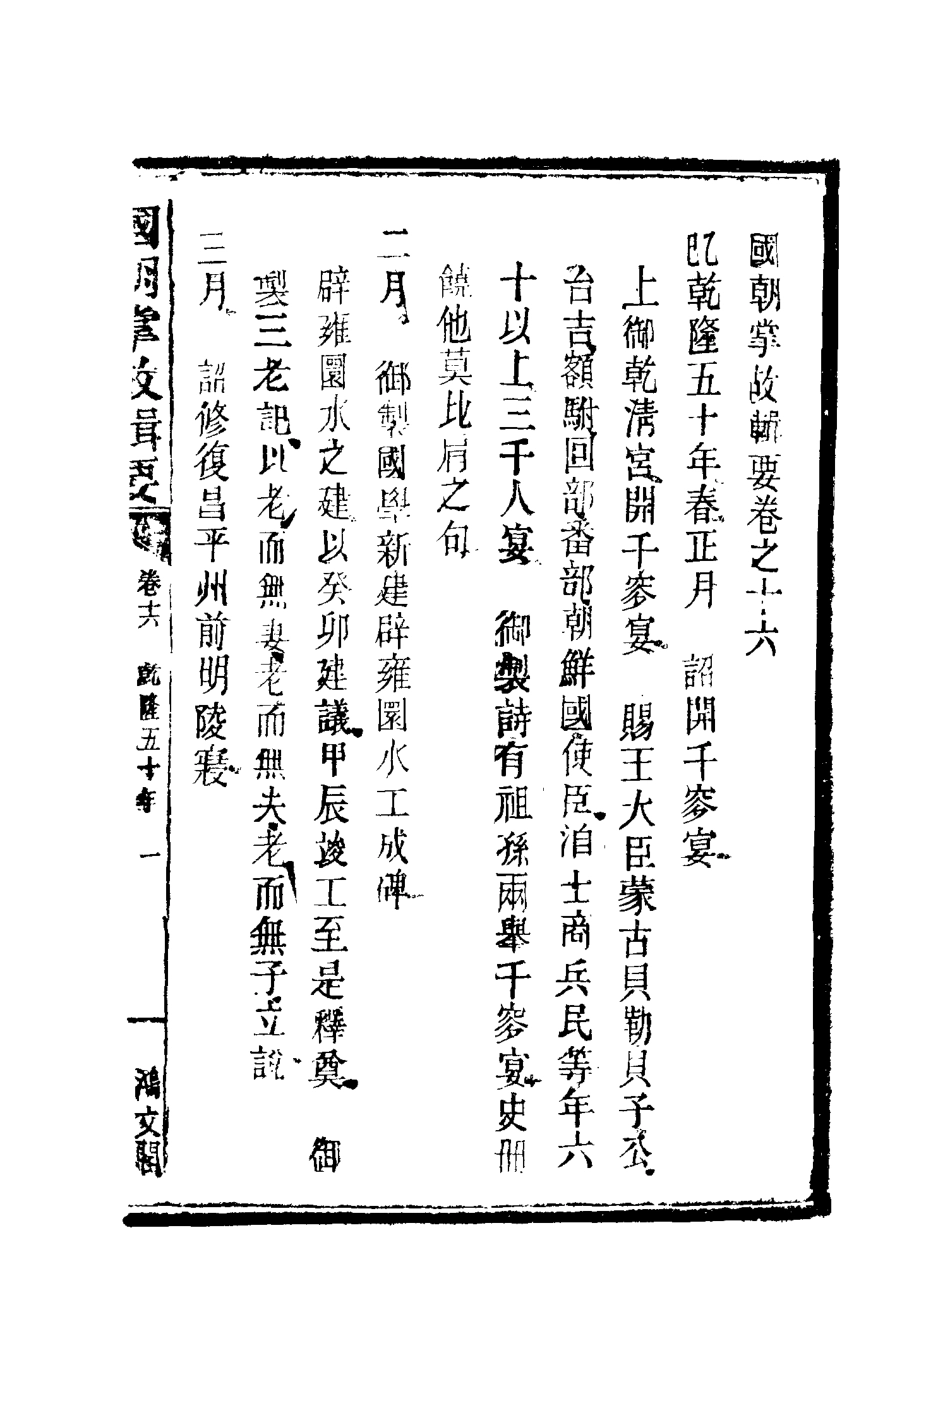 國朝掌故輯要卷之十六
乙巳乾隆五十年春正月　詔開千叟宴
上御乾淸宮開千叟宴　賜王大臣蒙古貝勒貝子公
台吉額駙回部番部朝鮮國使臣洎士商兵民等年六
十以上三千人宴　御製詩有祖孫兩舉千叟宴史冊
饒他莫比肩之句
二月　御製國學新建辟雍圜水工成碑
辟雍圜水之建以癸卯建議甲辰竣工至是釋奠　御
製三老記以老而無妻老而無夫老而無子立說
三月　詔修復昌平州前明陵寢
國朝掌故輯要　卷十六　乾隆五十年　一　鴻文閣